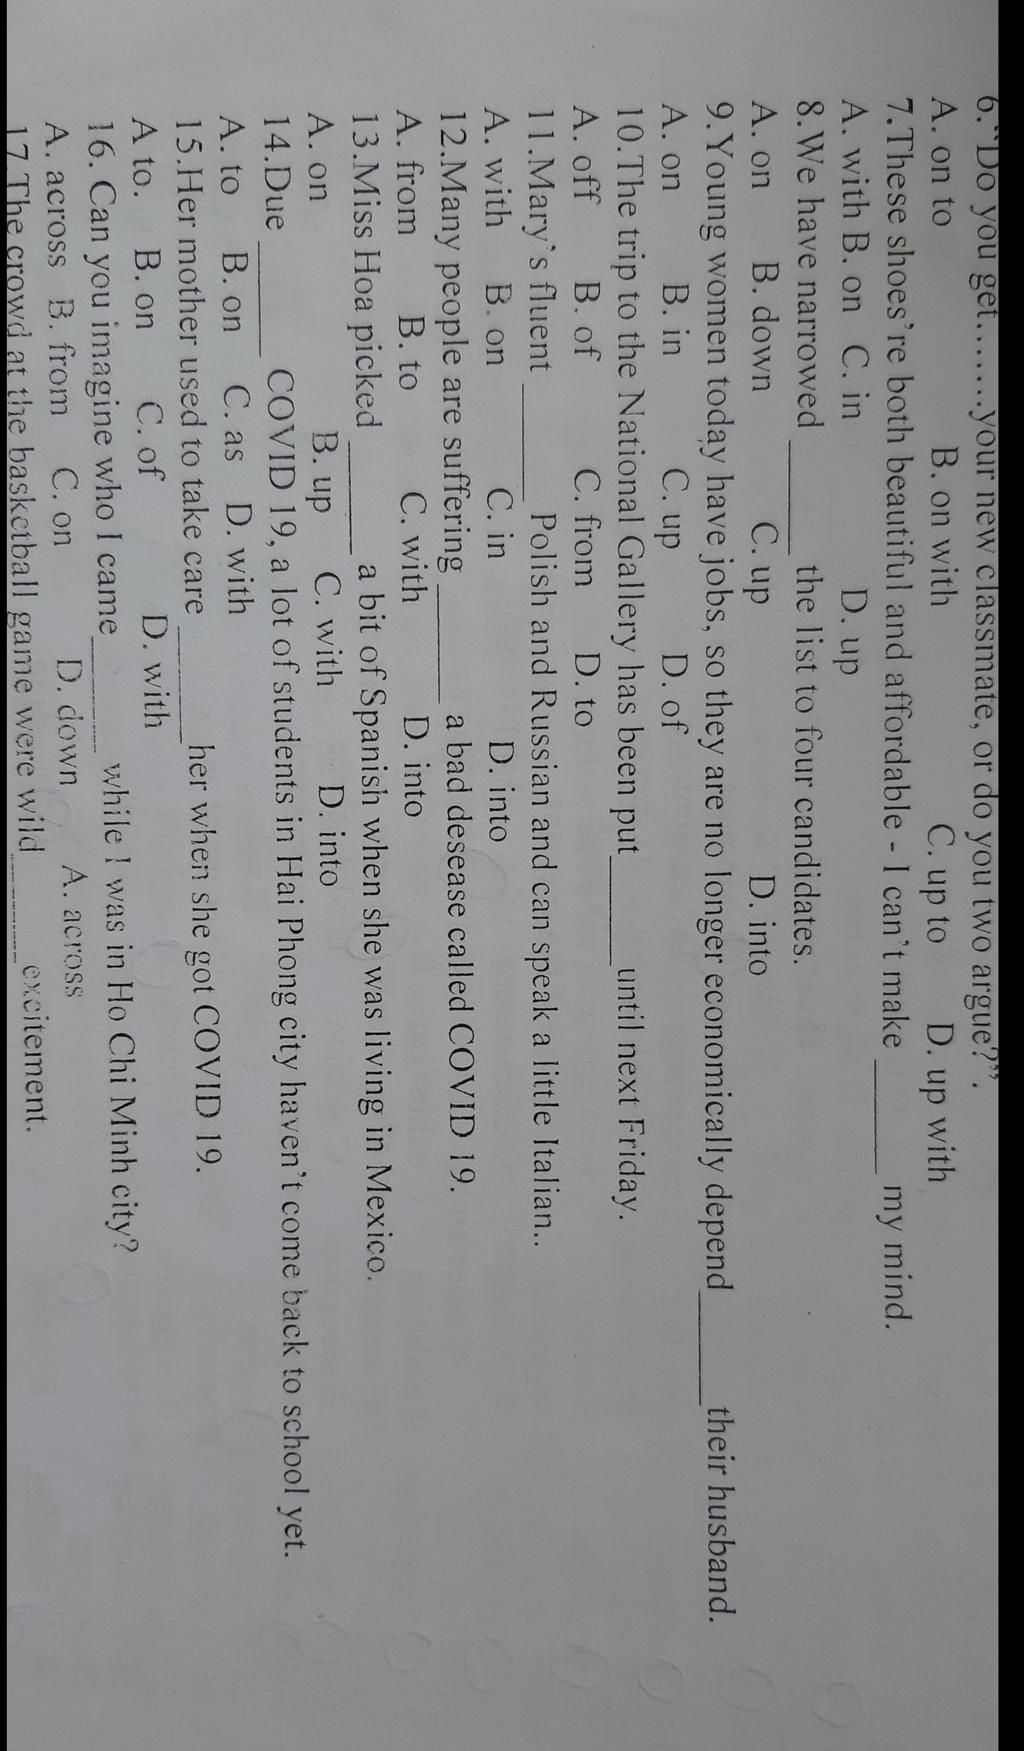 6."Do you get.......your new classmate, or do you two argue?".
A. on to B. on with C. up to D. up with
7.These shoes're both beautiful and affordable - I can't make ______ my mind.
A. with B. on C. in D. up
8.We have narrowed ______ the list to four candidates.
A. on B. down C. up D. into
9.Young women today have jobs, so they are no longer economically depend______ their husband.
A. on B. in C. up D. of
10.The trip to the National Gallery has been put______until next Friday.
A. off B. of C. from D. to
11.Mary's fluent ______ Polish and Russian and can speak a little Italian..
A. with B. on C. in D. into
12.Many people are suffering______ a bad desease called COVID 19.
A. from B. to C. with D. into
13.Miss Hoa picked ______ a bit of Spanish when she was living in Mexico.
A. on B. up C. with D. into
14.Due ______ COVID 19, a lot of students in Hai Phong city haven't come back to school yet.
A. to B. on C. as D. with
15.Her mother used to take care ______her when she got COVID 19.
A to. B. on C. of D. with
16. Can you imagine who I came______ while I was in Ho Chi Minh city?
A. across B. from C. on D. down A. across
17.The crowd at the basketball game were wild ______excitement.